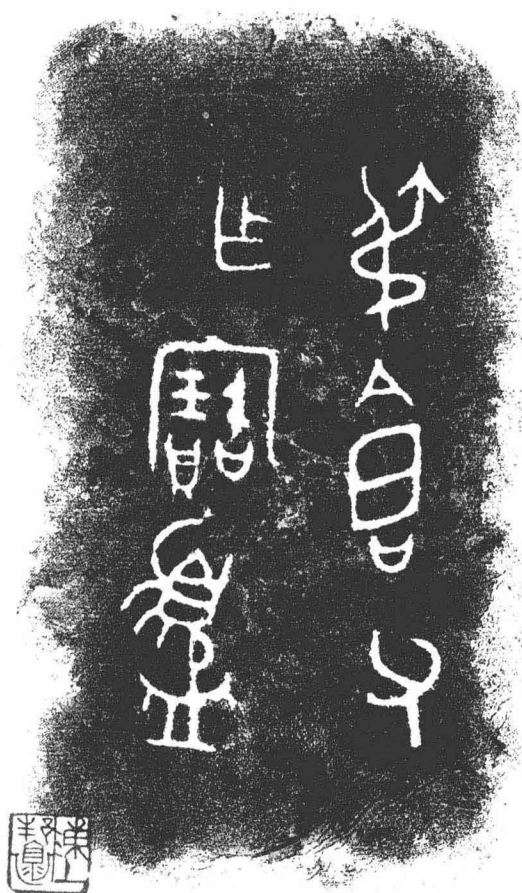 弔倉父
乍寶盨